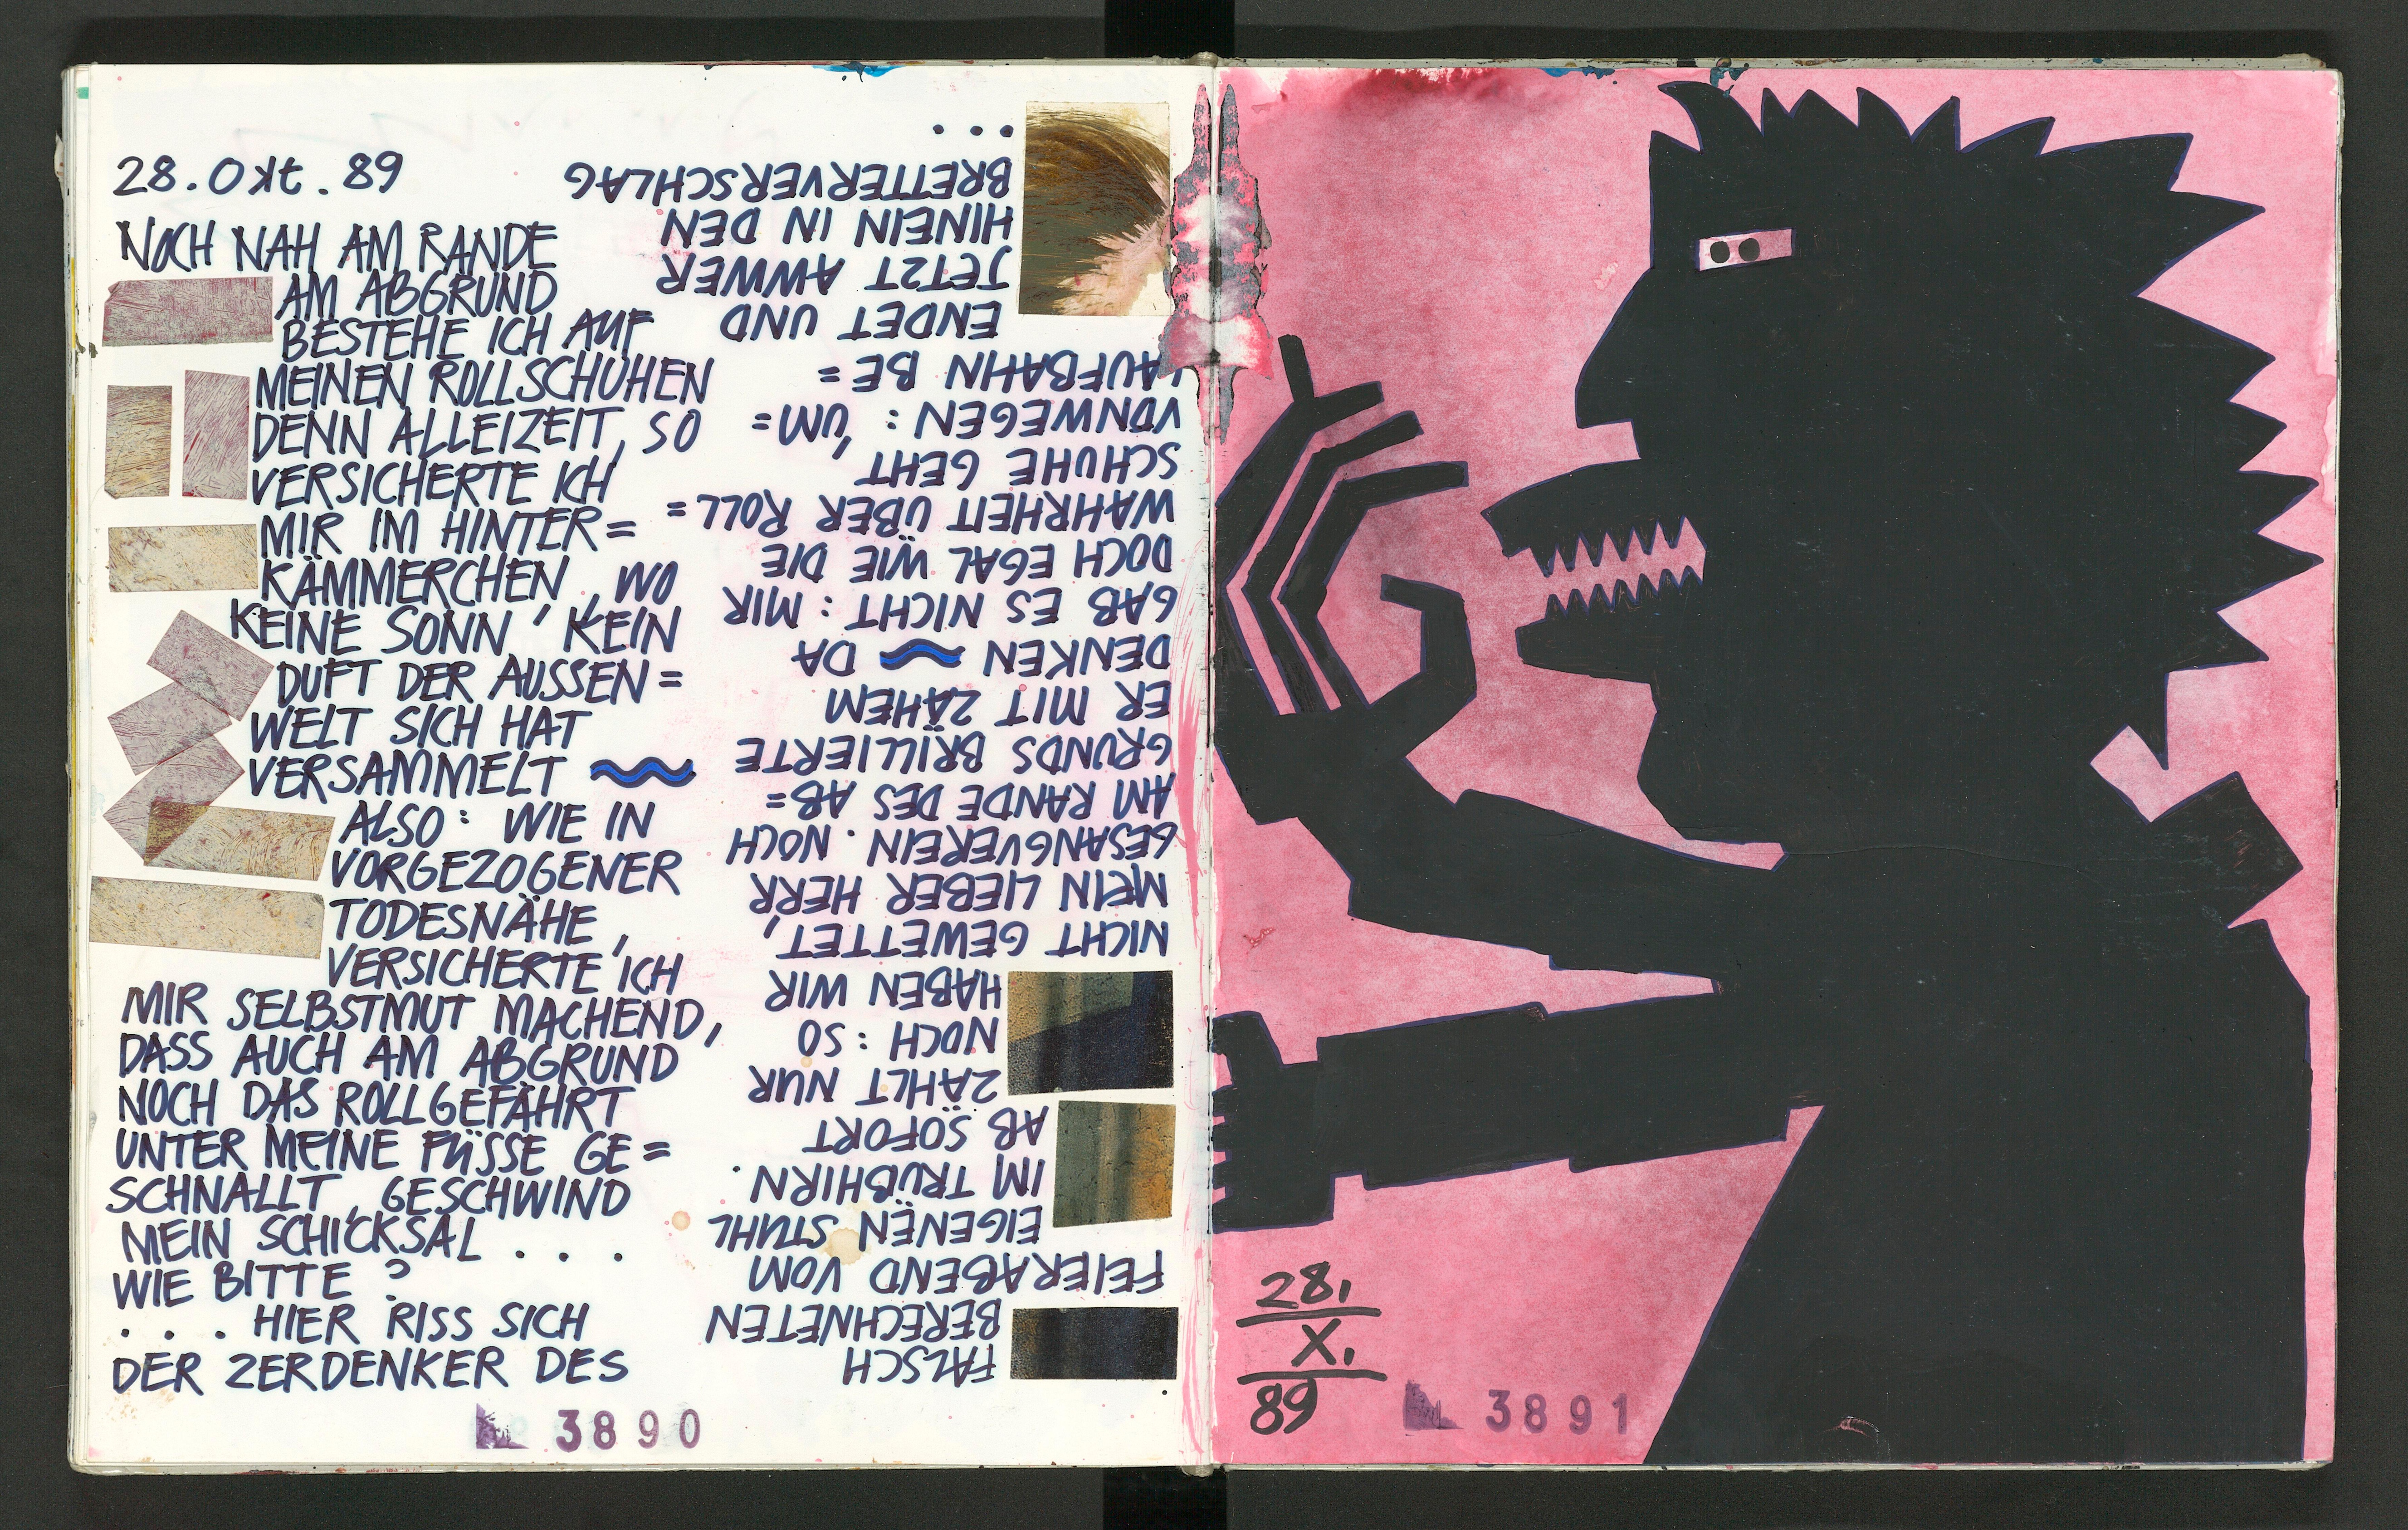 28. Okt. 89
NOCH NAH AM RANDE
AM ABGRUND
BESTEHE ICH AUF
MEINEN ROLLSCHUHEN
DENN ALLEIZEIT, SO
VERSICHERTE ICH
MIR IM HINTER=
KÄMMERCHEN, WO
KEINE SONN', KEIN
DUFT DER AUSSEN=
WELT SICH HAT
VERSAMMELT ~
ALSO: WIE IN
VORGEZOGENER
TODESNÄHE,
VERSICHERTE ICH
MIR SELBSTMUT MACHEND,
DASS AUCH AM ABGRUND
NOCH DAS ROLLGEFÄHRT
UNTER MEINE FÜSSE GE=
SCHNALLT, GESCHWIND
MEIN SCHICKSAL ...
WIE BITTE?
... HIER RISS SICH
DER ZERDENKER DES
FALSCH
BERECHNETEN
FEIERABEND VOM
EIGENEN STUHL
IM TRÜBHIRN.
AB SOFORT
ZÄHLT NUR
NOCH: SO
HABEN WIR
NICHT GEWETTET,
MEIN LIEBER HERR
GESANGVEREIN. NOCH
AM RANDE DES AB=
GRUNDS BRILLIERTE
ER MIT ZÄHEM
DENKEN ~ DA
GAB ES NICHT: MIR
DOCH EGAL WIE DIE
WAHRHEIT ÜBER ROLL=
SCHUHE GEHT
VONWEGEN: 'UM=
LAUFBAHN BE=
ENDET UND
JETZT AWWER
HINEIN IN DEN
BRETTERVERSCHLAG
...
3890
28.
X.
89
3891